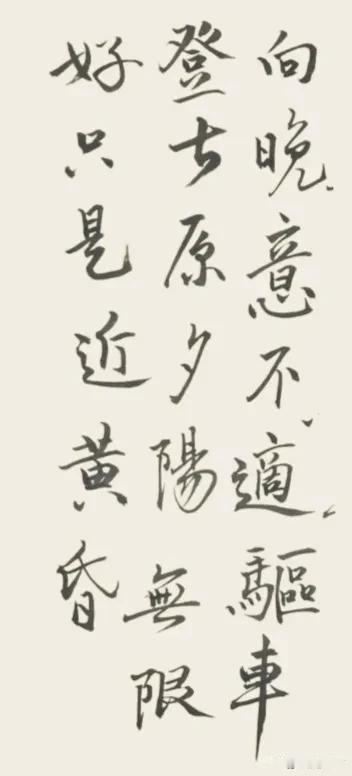 向晚意不適驅車
登古原夕陽無限
好只是近黃昏